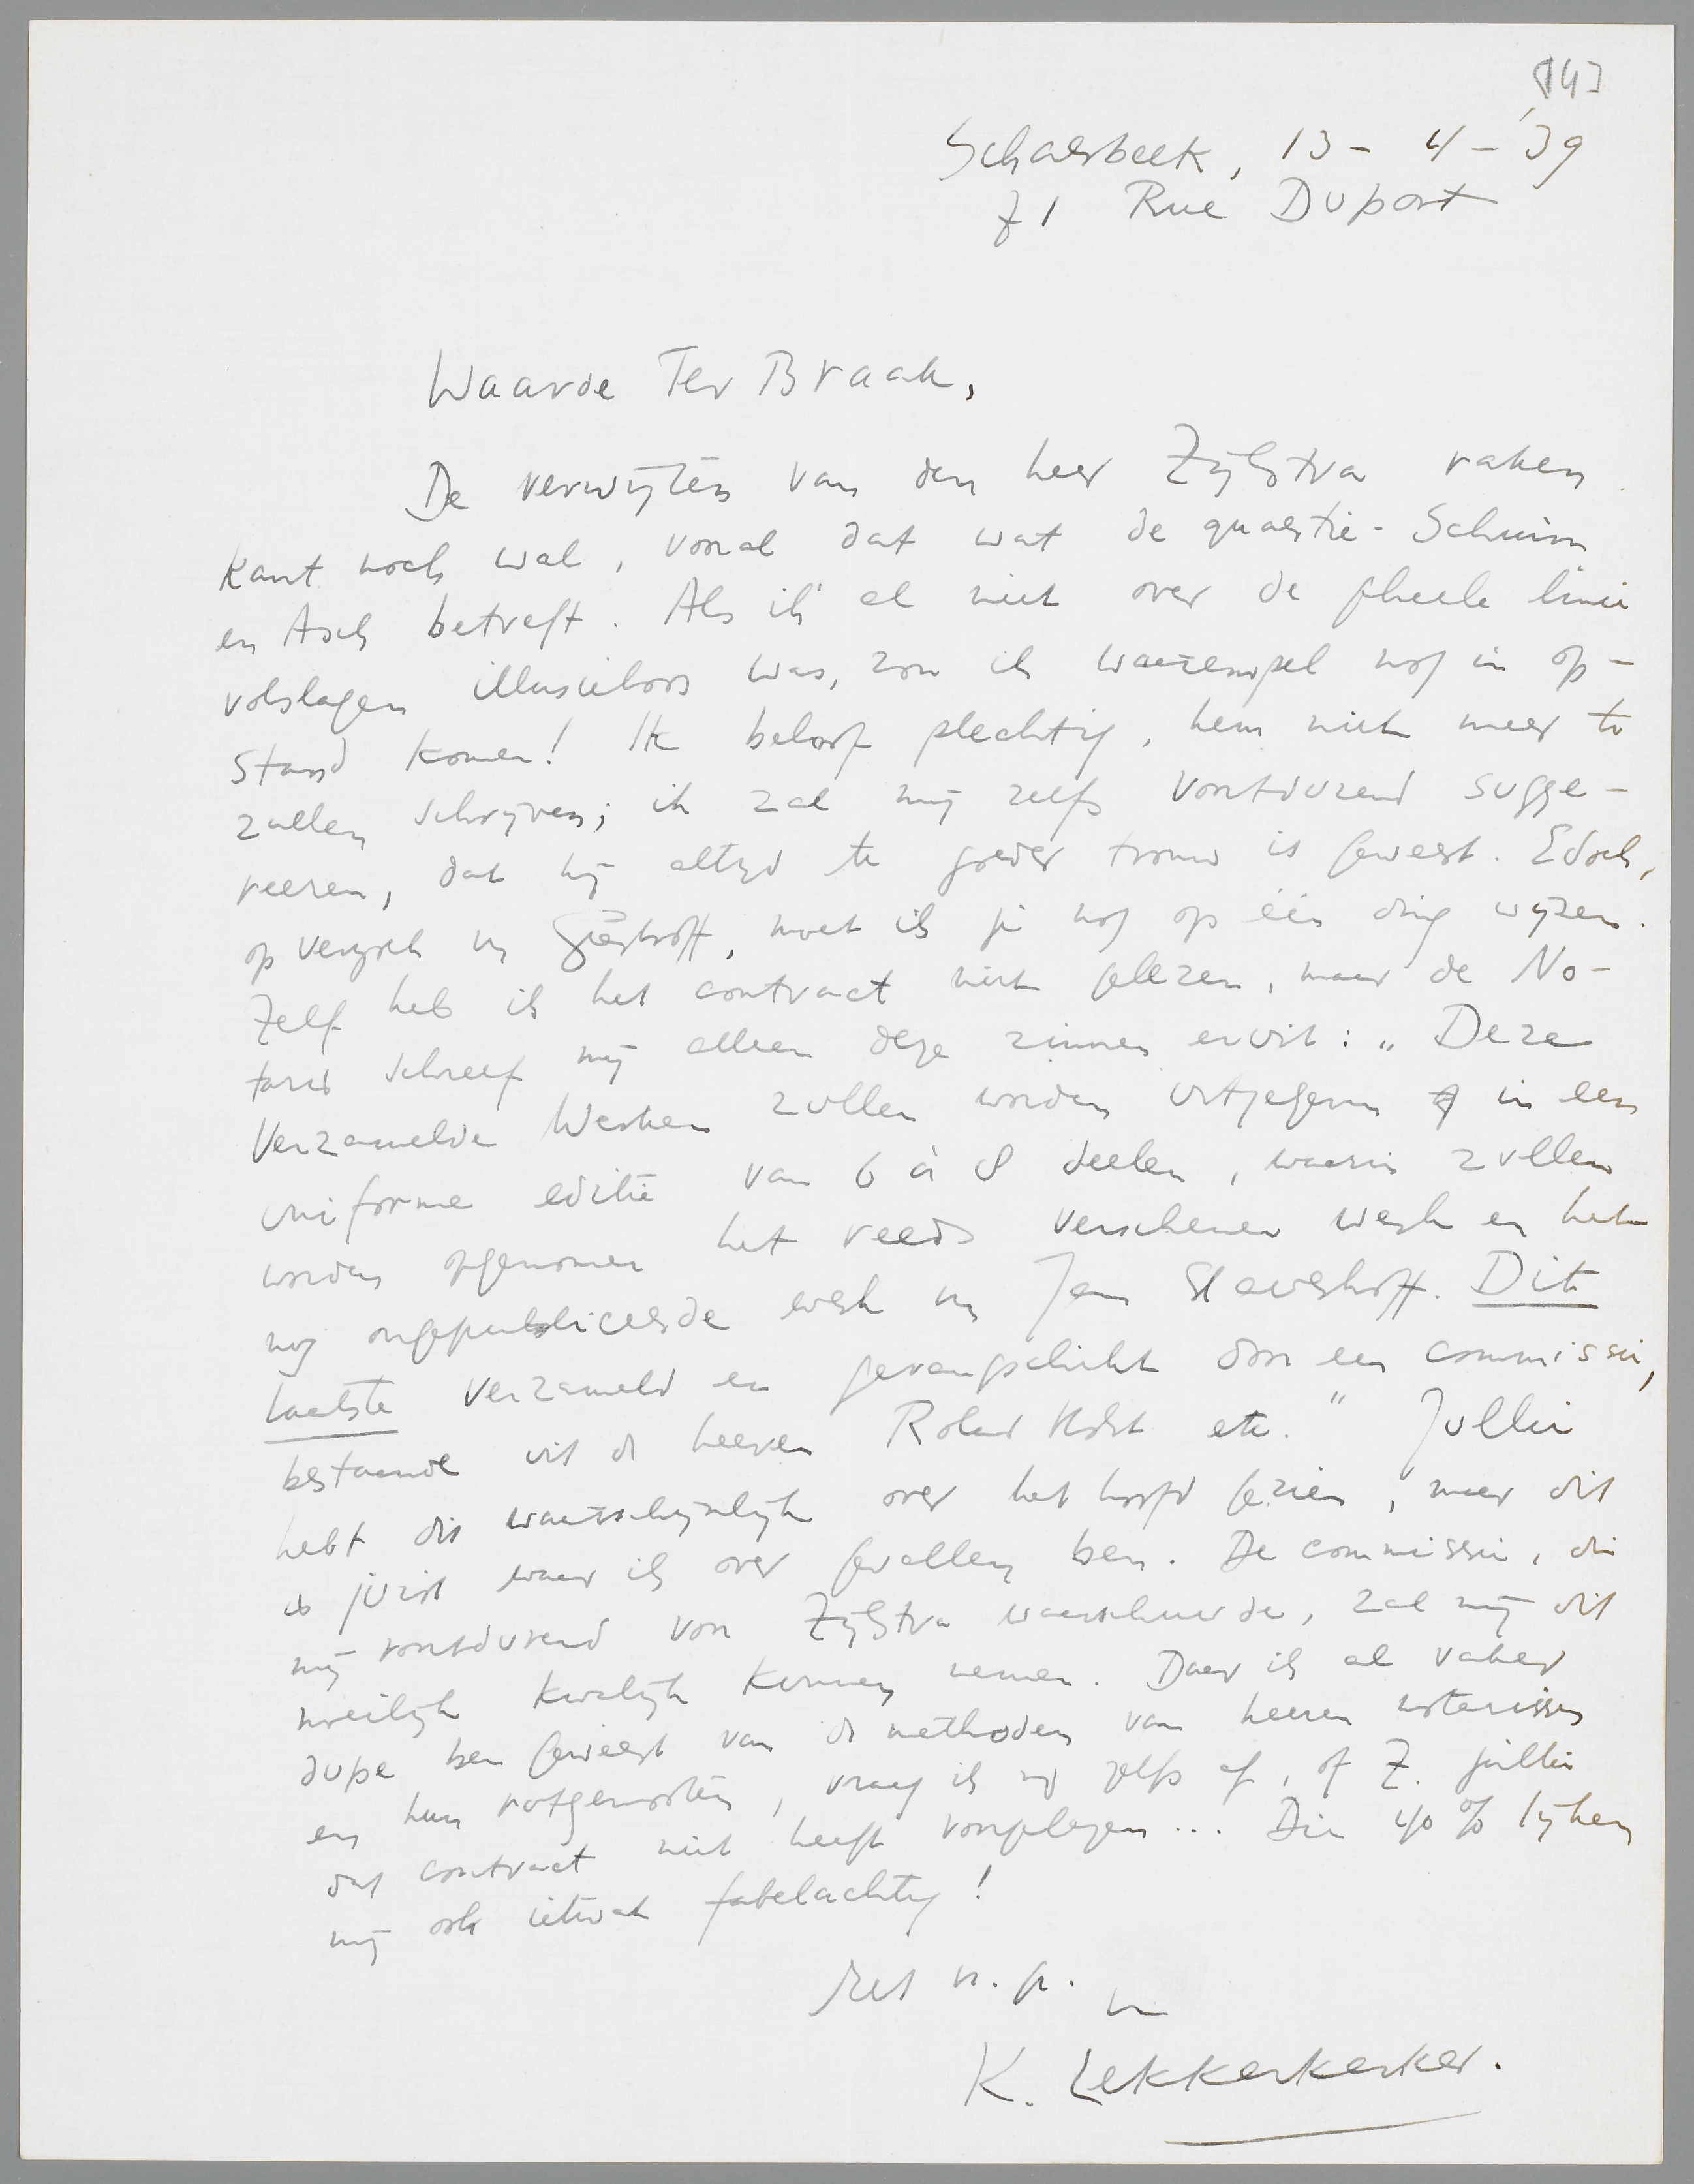 [14]
Schaerbeek, 13-4-'39
71 Rue Duport
Waarde Ter Braak,
De verwijten van den heer Zijlstra raken
kant noch wal, vooral dat wat de quaestie-Schuim
en Asch betreft. Als ik al niet over de gheele linie
volslagen illusieloos was, zou ik waarempel nog in op-
stand komen! Ik beloof plechtig, hem niet meer te
zullen schrijven; ik zal mij zelfs voortdurend sugge-
reeren, dat hij altijd te goeder trouw is geweest. Edoch,
op verzoek v. Greshoff, moet ik je nog op één ding wijzen.
Zelf heb ik het contract niet gelezen, maar de No-
taris schreef mij alleen deze zinnen eruit: "Deze
Verzamelde Werken zullen worden uitgegeven in een
uniforme editie van 6 à 8 deelen, waarin zullen
worden opgenomen het reeds verschenen werk en het
nog ongepubliceerde werk v. Jan Slauerhoff. Dit
laatste verzameld en gerangschikt door een commissie,
bestaande uit de heeren Roland Holst etc." Jullie
hebt dit waarschijnlijk over het hoofd gezien, maar dit
is juist waar ik over gevallen ben. De commissie, die
mij voortdurend voor Zijlstra waarschuwde, zal mij dit
moeilijk kwalijk kunnen nemen. Daar ik al vaker
dupe ben geweest van de methoden van heeren notarissen
en hun rotgenooten, vraag ik mij zelfs af, of Z. jullie
dat contract niet heeft voorgelegen... Die 40% lijken
mij ook ietwat fabelachtig!
Met v. gr.
v.
K. Lekkerkerker.